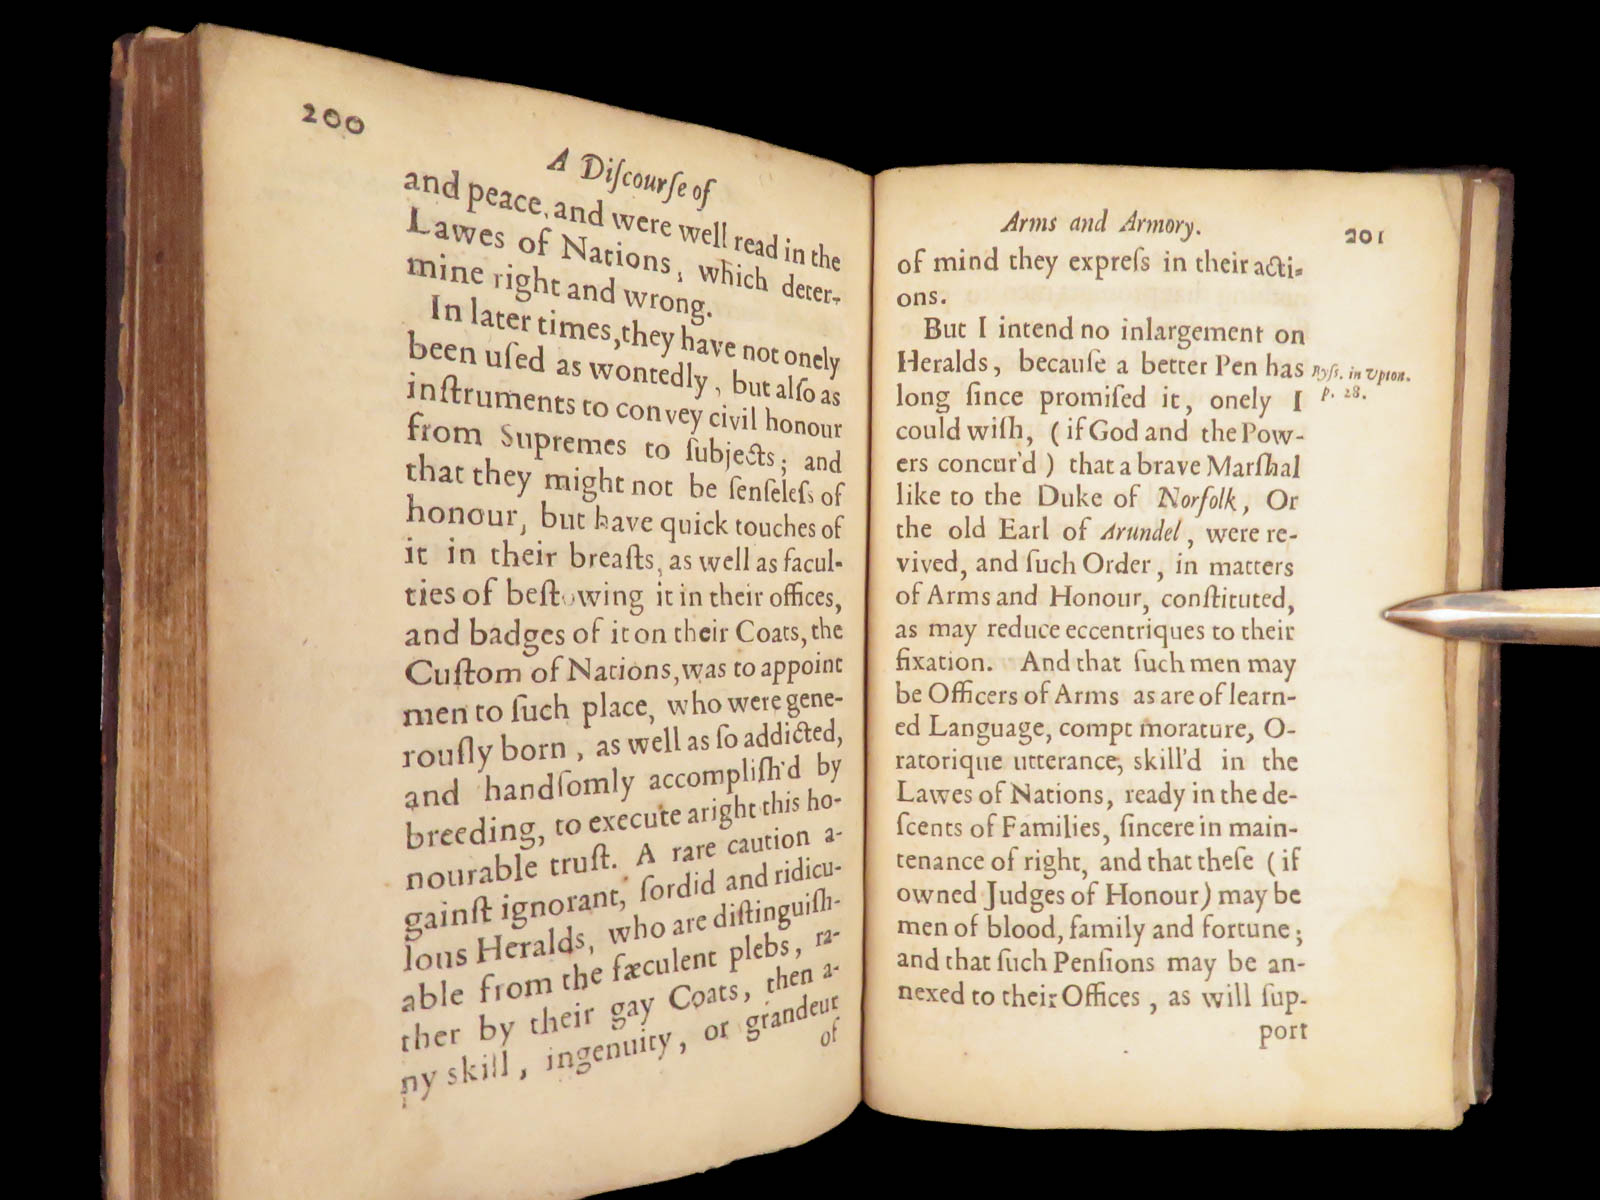 200
A Diſcourſe of
and peace, and were well read in the
Lawes of Nations, which deter-
mine right and wrong.
In later times, they have not onely
been uſed as wontedly, but alſo as
inſtruments to convey civil honour
from Supremes to ſubjects; and
that they might not be ſenſeleſs of
honour, but have quick touches of
it in their breaſts, as well as facul-
ties of beſtowing it in their offices,
and badges of it on their Coats, the
Cuſtom of Nations, was to appoint
men to ſuch place, who were gene-
rouſly born, as well as ſo addicted,
and handſomly accompliſh'd by
breeding, to execute aright this ho-
nourable truſt. A rare caution a-
gainſt ignorant, ſordid and ridicu-
lous Heralds, who are diſtinguiſh-
able from the fæculent plebs, ra-
ther by their gay Coats, then a-
ny skill, ingenuity, or grandeur
of
Arms and Armory.
201
of mind they expreſs in their acti-
ons.
But I intend no inlargement on
Heralds, becauſe a better Pen has
long ſince promiſed it, onely I
could wiſh, (if God and the Pow-
ers concur'd) that a brave Marſhal
like to the Duke of Norfolk, Or
the old Earl of Arundel, were re-
vived, and ſuch Order, in matters
of Arms and Honour, conſtituted,
as may reduce eccentriques to their
fixation. And that ſuch men may
be Officers of Arms as are of learn-
ed Language, compt morature, O-
ratorique utterance, skill'd in the
Lawes of Nations, ready in the de-
ſcents of Families, ſincere in main-
tenance of right, and that theſe (if
owned Judges of Honour) may be
men of blood, family and fortune;
and that ſuch Penſions may be an-
nexed to their Offices, as will ſup-
port
Byſſ. in Upton.
p. 28.